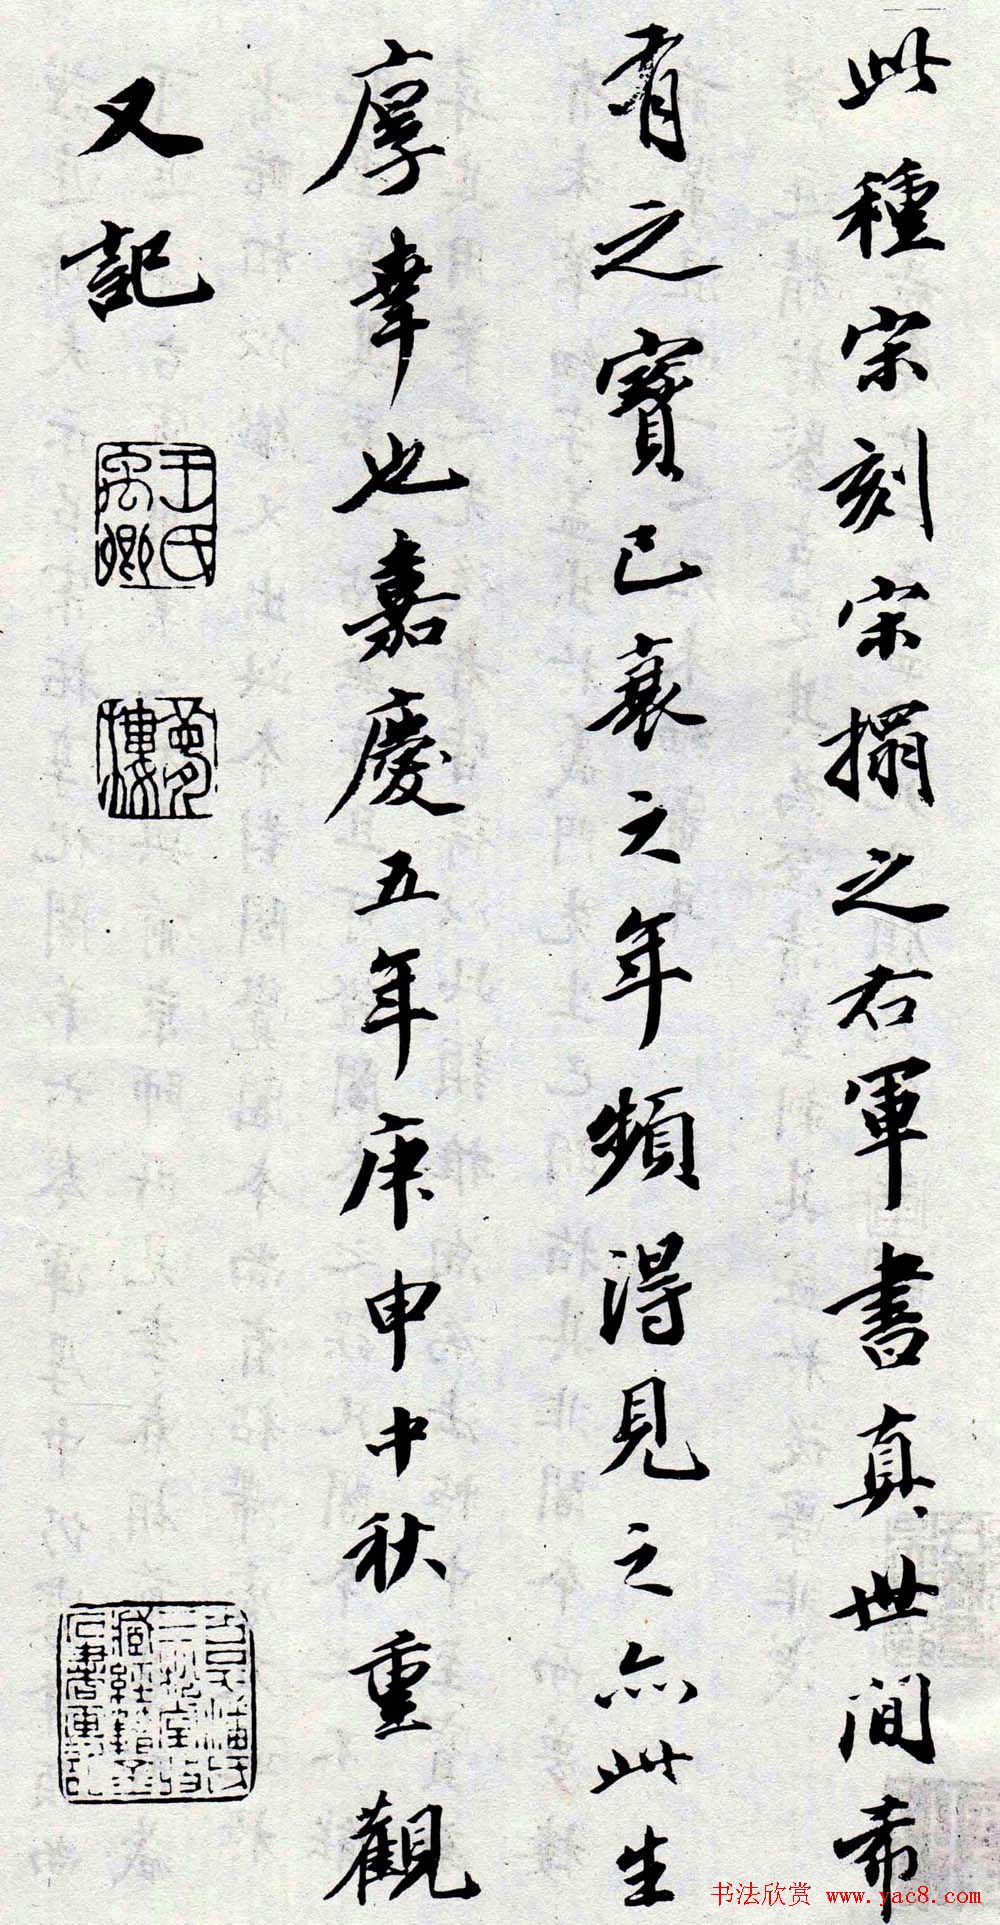 此種宋刻宋搨之右軍書真世間希
有之寶已衰之年頻得見之亦此生
厚幸也嘉慶五年庚申中秋重觀
又記
王氏禹卿
夢樓
书法欣赏 www.yac8.com